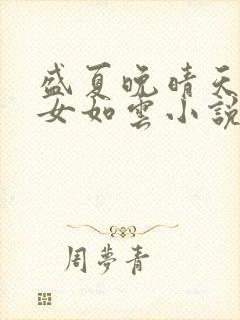 盛夏晚晴天
女如雲小說
周夢青